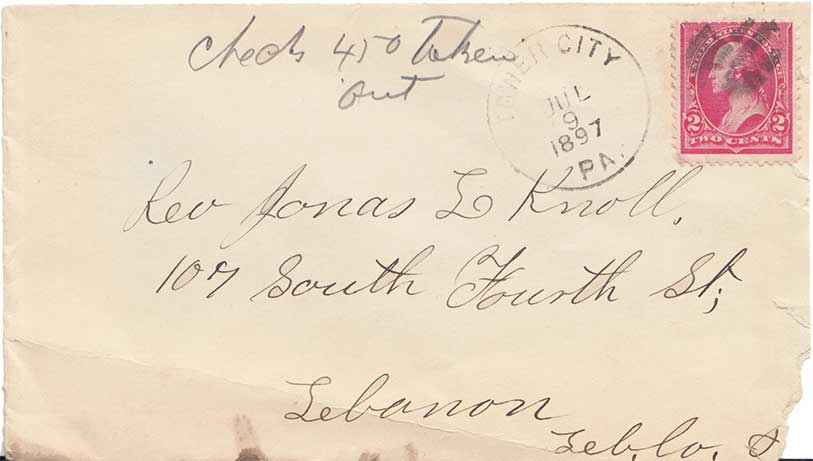 Check 450 taken
out
TOWER CITY
JUL
9
1897
PA.
UNITED STATES POSTAGE
2 2
TWO CENTS
Rev Jonas L Knoll,
107 South Fourth St,
Lebanon
Leb. Co,